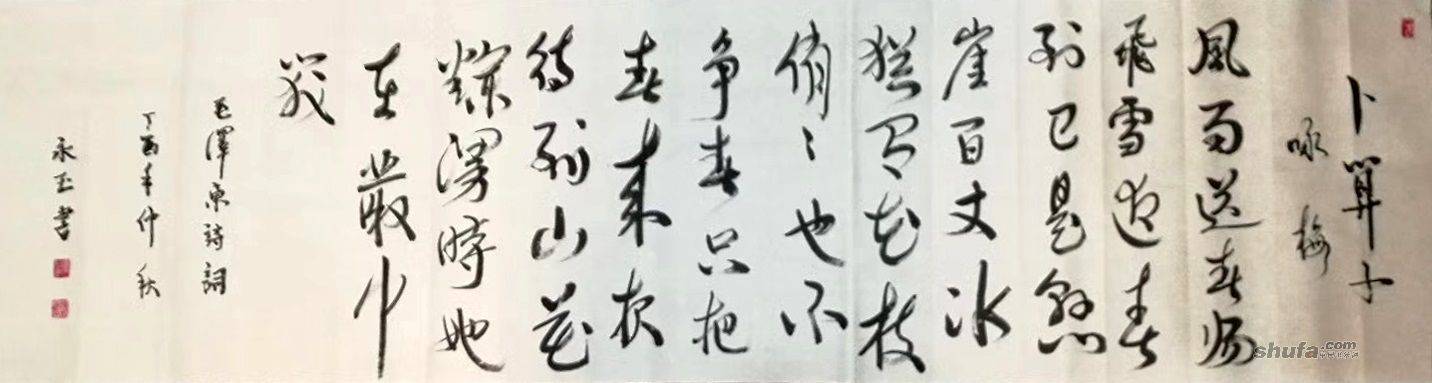 卜算子
咏梅
風雨送春归
飛雪迎春
到已是懸
崖百丈冰
猶有花枝
俏〻也不
争春只把
春来报
待到山花
爛漫時她
在叢中
笑
毛澤東詩詞
丁酉年仲秋
永玉書
shufa.com